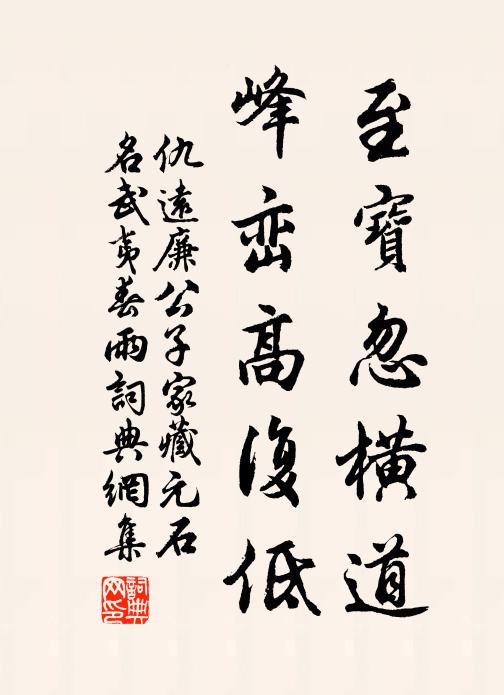 至寶忽橫道
峰巒高復低
仇遠廉公子家藏元石
名武夷春雨詞典網集
詞典
网印